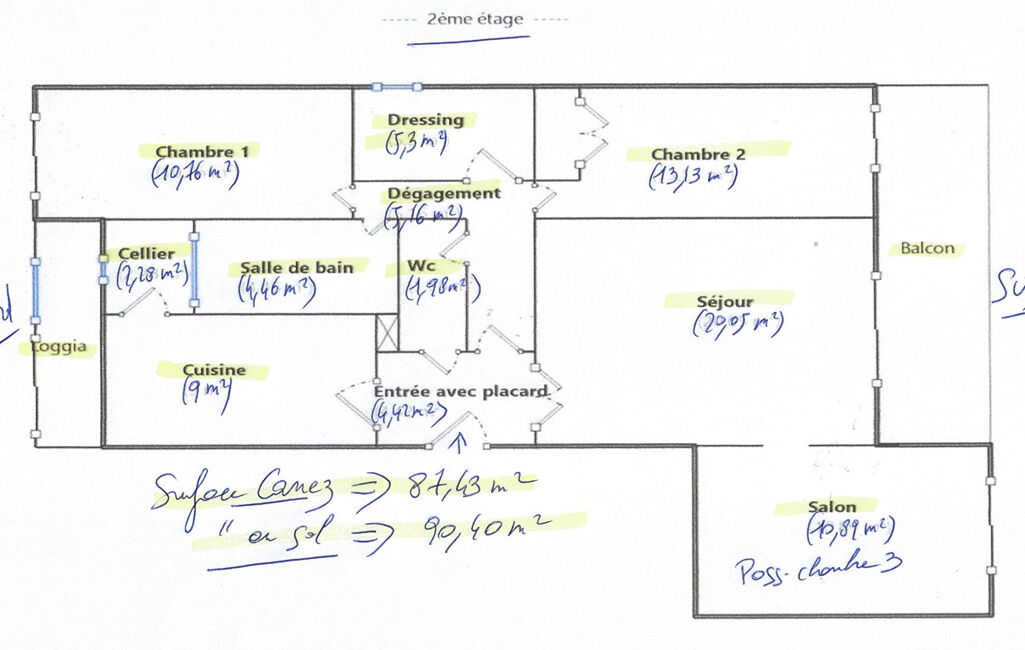 2ème étage
Dressing
(5,3 m²)
Chambre 1
(10,76 m²)
Chambre 2
(13,13 m²)
Dégagement
(5,16 m²)
Cellier
(2,28 m²)
Salle de bain
(4,46 m²)
Wc
(1,98 m²)
Balcon
Séjour
(20,05 m²)
Loggia
Cuisine
(9 m²)
Entrée avec placard
(4,42 m²)
Surface Carrez => 87,43 m²
" au sol => 90,40 m²
Salon
(10,89 m²)
Poss. chambre 3